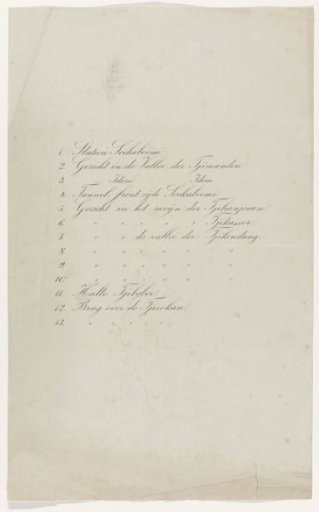 1. Station Soekaboemi
2. Gezicht in de Vallei der Tjimandiri
3. Idem Idem
4. Tunnel front zijde Soekaboemi
5. Gezicht in het ravijn der
6. " " " " "
7. " " de vallei der Tjikondang
8. " " " " " "
9. " " " " " "
10. " " " " " "
11. Halte Tjibeber
12. Brug over de Tjisokan
13. " " " "